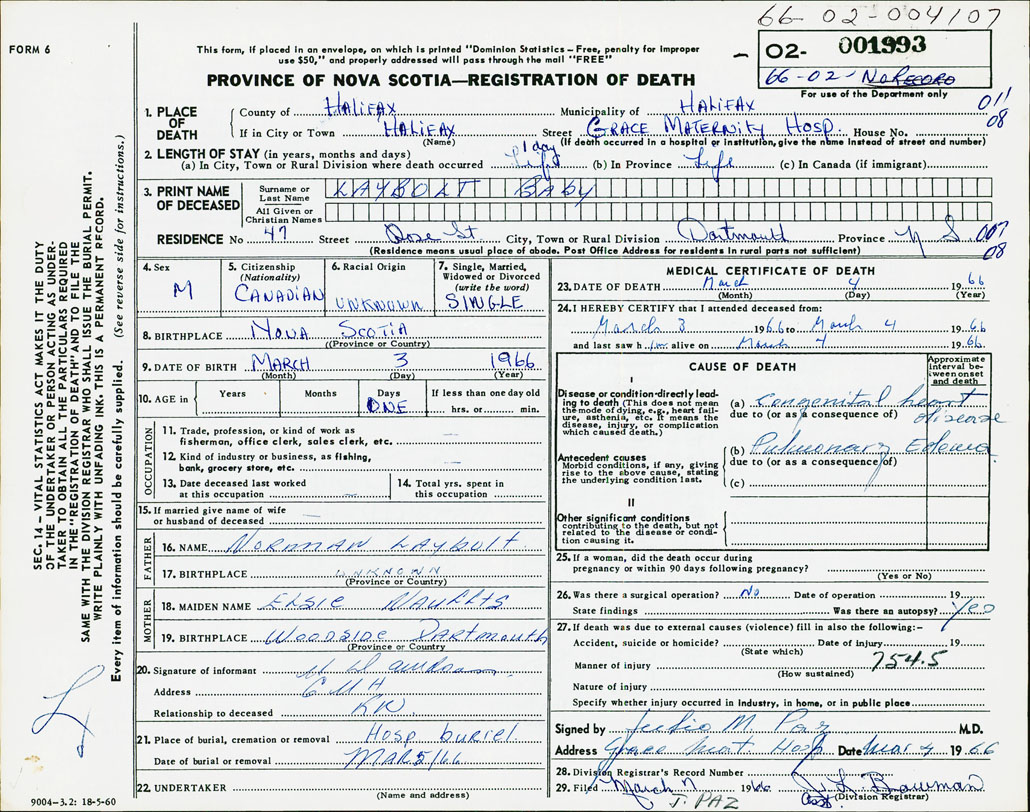 66-02-004107
FORM 6
This form, if placed in an envelope, on which is printed "Dominion Statistics - Free, penalty for improper
use $50," and properly addressed will pass through the mail "FREE"
PROVINCE OF NOVA SCOTIA—REGISTRATION OF DEATH
02- 001993
66-02- NO RECORD
For use of the Department only
011
08
1. PLACE OF DEATH
County of HALIFAX Municipality of HALIFAX
If in City or Town HALIFAX Street GRACE MATERNITY HOSP. House No.
(Name) (If death occurred in a hospital or institution, give the name instead of street and number)
2. LENGTH OF STAY (in years, months and days)
1 day
(a) In City, Town or Rural Division where death occurred Life (b) In Province Life (c) In Canada (if immigrant)
3. PRINT NAME OF DECEASED
Surname or Last Name LAYBOLT BABY
All Given or Christian Names
RESIDENCE No 47 Street Rose St City, Town or Rural Division Dartmouth Province N S
007
08
(Residence means usual place of abode. Post Office Address for residents in rural parts not sufficient)
4. Sex M
5. Citizenship (Nationality) CANADIAN
6. Racial Origin UNKNOWN
7. Single, Married, Widowed or Divorced (write the word) SINGLE
8. BIRTHPLACE NOVA SCOTIA
((Province or Country)
9. DATE OF BIRTH MARCH 3 1966
(Month) (Day) (Year)
10. AGE in Years Months Days ONE If less than one day old hrs. or min.
OCCUPATION
11. Trade, profession, or kind of work as
fisherman, office clerk, sales clerk, etc. —
12. Kind of industry or business, as fishing,
bank, grocery store, etc. —
13. Date deceased last worked
at this occupation —
14. Total yrs. spent in
this occupation
15. If married give name of wife
or husband of deceased —
FATHER
16. NAME NORMAN LAYBOLT
17. BIRTHPLACE UNKNOWN
(Province or Country)
MOTHER
18. MAIDEN NAME ELSIE
19. BIRTHPLACE WOODSIDE DARTMOUTH
(Province or Country
20. Signature of informant
Address G M H
Relationship to deceased
21. Place of burial, cremation or removal Hosp buriel.
Date of burial or removal MAR 5/66
22. UNDERTAKER
(Name and address)
9004-3.2: 18-5-60
MEDICAL CERTIFICATE OF DEATH
23. DATE OF DEATH March 4 1966
(Month) (Day) (Year)
24. I HEREBY CERTIFY that I attended deceased from:
March 3 1966 to March 4 1966
and last saw him alive on March 4 1966
CAUSE OF DEATH
Approximate interval between onset and death
I
Disease or condition directly leading to death (This does not mean the mode of dying, e.g., heart failure, asthenia, etc. It means the disease, injury, or complication which caused death.)
(a) Congenital heart disease
due to (or as a consequence of)
(b) Pulmonary Edema
due to (or as a consequence of)
(c)
Antecedent causes
Morbid conditions, if any, giving rise to the above cause, stating the underlying condition last.
II
Other significant conditions
contributing to the death, but not related to the disease or condition causing it.
25. If a woman, did the death occur during
pregnancy or within 90 days following pregnancy?
(Yes or No)
26. Was there a surgical operation? No Date of operation 19
State findings Was there an autopsy? Yes
27. If death was due to external causes (violence) fill in also the following:-
Accident, suicide or homicide? Date of injury 19
(State which)
754.5
Manner of injury
(How sustained)
Nature of injury
Specify whether injury occurred in industry, in home, or in public place
Signed by Julio M. Paz M.D.
Address Grace Mat Hosp Date Mar 4 1966
28. Division Registrar's Record Number
29. Filed March 7 1966 Bowman
(Division Registrar)
J. PAZ
SEC. 14 - VITAL STATISTICS ACT MAKES IT THE DUTY
OF THE UNDERTAKER OR PERSON ACTING AS UNDER-
TAKER TO OBTAIN ALL THE PARTICULARS REQUIRED
IN THE "REGISTRATION OF DEATH" AND TO FILE THE
SAME WITH THE DIVISION REGISTRAR WHO SHALL ISSUE THE BURIAL PERMIT.
WRITE PLAINLY WITH UNFADING INK. THIS IS A PERMANENT RECORD.
Every item of information should be carefully supplied. (See reverse side for instructions.)